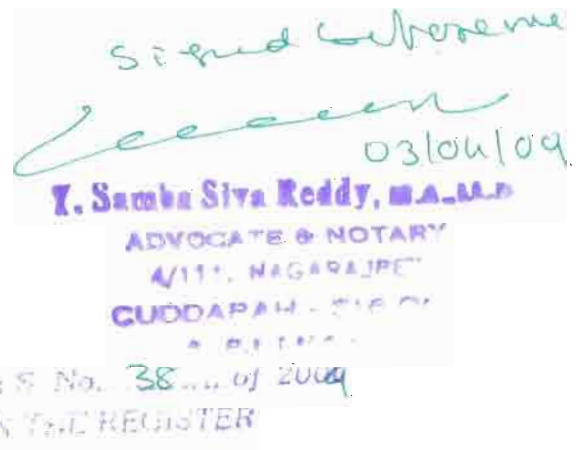 Signed before me
03/04/09
Y. Samba Siva Reddy, M.A., B.L.
ADVOCATE & NOTARY
4/111, NAGARAJPET
CUDDAPAH -
S No. 38 of 2009
THE REGISTER